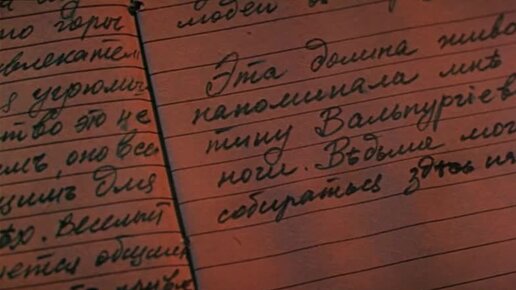 то горы
влекател
я угрюмы
ство это не
имъ, оно все
щимъ для
ѣхо. Веселый
яется общим
людей
Эта долина живо
напоминала мнѣ
тину Вальпургіев
ночи. Вѣдьмы мог
собираться здѣсь на